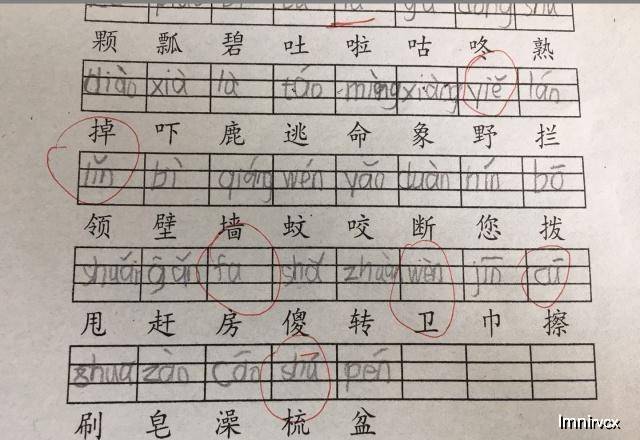 颗 瓢 碧 吐 啦 咕 咚 熟
diào xià là táo mìng xiàng yiě lán
掉 吓 鹿 逃 命 象 野 拦
lǐn bì qiáng wén yǎo duàn nín bō
领 壁 墙 蚊 咬 断 您 拨
shuǎi gǎn fa shǎ zhuàn wèn jīn cū
甩 赶 房 傻 转 卫 巾 擦
shua zào cāo shū pén
刷 皂 澡 梳 盆
lmnirvcx